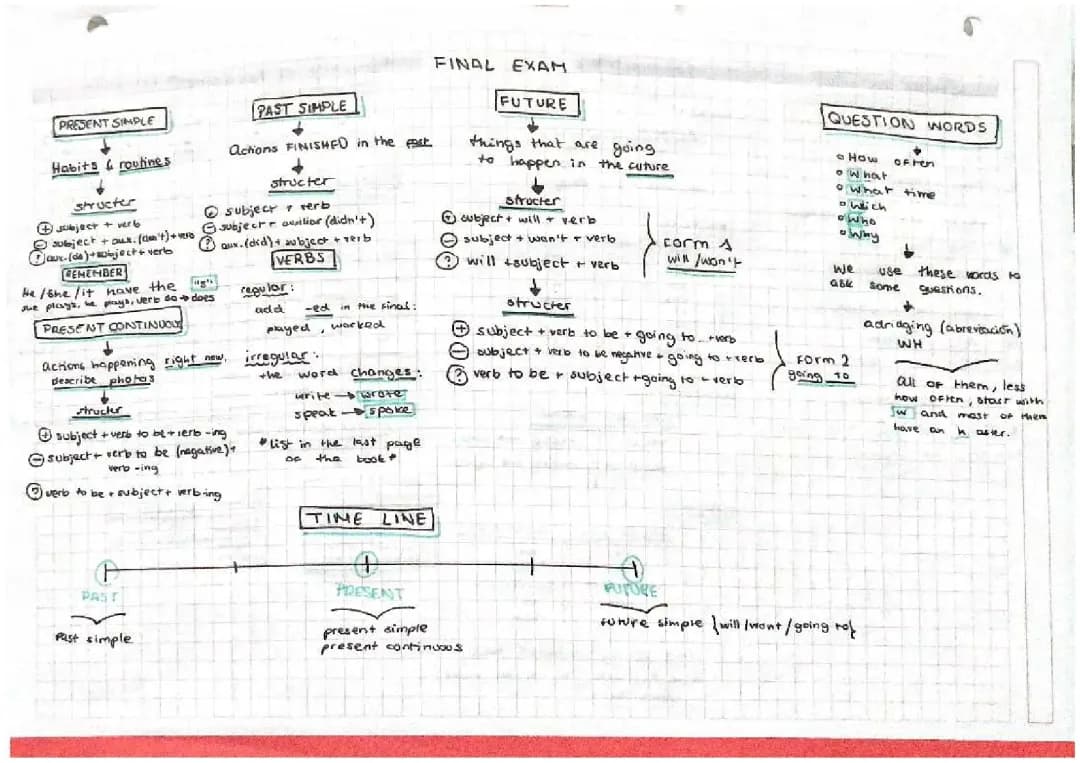 FINAL EXAM
PRESENT SIMPLE
Habits & routines
structer
+ subject + verb
- subject + aux. (don't) + verb
? aux. (do) + subject + verb
REMEMBER
he / she / it have the "s":
she plays, he plays, verb do → does
PRESENT CONTINUOUS
actions happening right now.
describe photos
structer
+ subject + verb to be + verb -ing
- subject + verb to be (negative) +
verb -ing
? verb to be + subject + verb-ing
PAST SIMPLE
Actions FINISHED in the past
structer
+ subject + verb
- subject + auxiliar (didn't)
? aux. (did) + subject + verb
VERBS
regular:
add -ed in the final:
played, worked
irregular:
the word changes:
write → wrote
speak → spoke
*list in the last page
of the book*
FUTURE
things that are going
to happen in the future
structer
+ subject + will + verb
- subject + won't + verb
? will + subject + verb
form 1
will / won't
structer
+ subject + verb to be + going to + verb
- subject + verb to be negative + going to + verb
? verb to be + subject + going to + verb
form 2
going to
QUESTION WORDS
How often
What
What time
Which
Who
Why
We use these words to
ask some questions.
adridging (abreviación)
WH
all of them, less
how often, start with
w and most of them
have an h after.
TIME LINE
PAST
PRESENT
FUTURE
Past simple
present simple
present continuous
future simple {will / wont / going to}